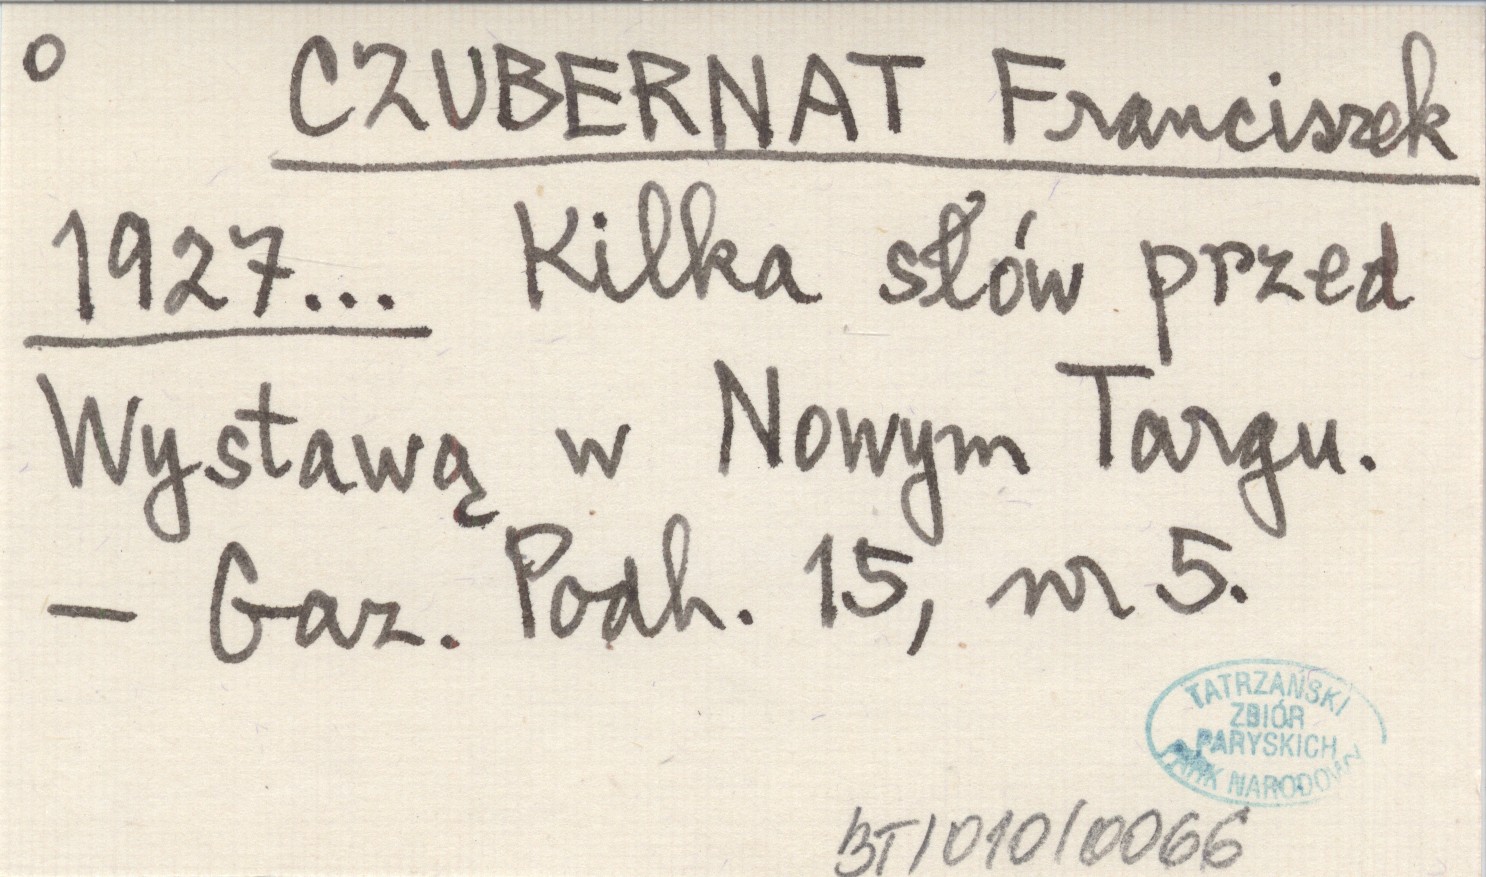 o CZUBERNAT Franciszek
1927... Kilka słów przed
Wystawą w Nowym Targu.
— Gaz. Podh. 15, nr 5.
TATRZAŃSKI
ZBIÓR
PARYSKICH
PARK NARODOWY
BT/010/0066